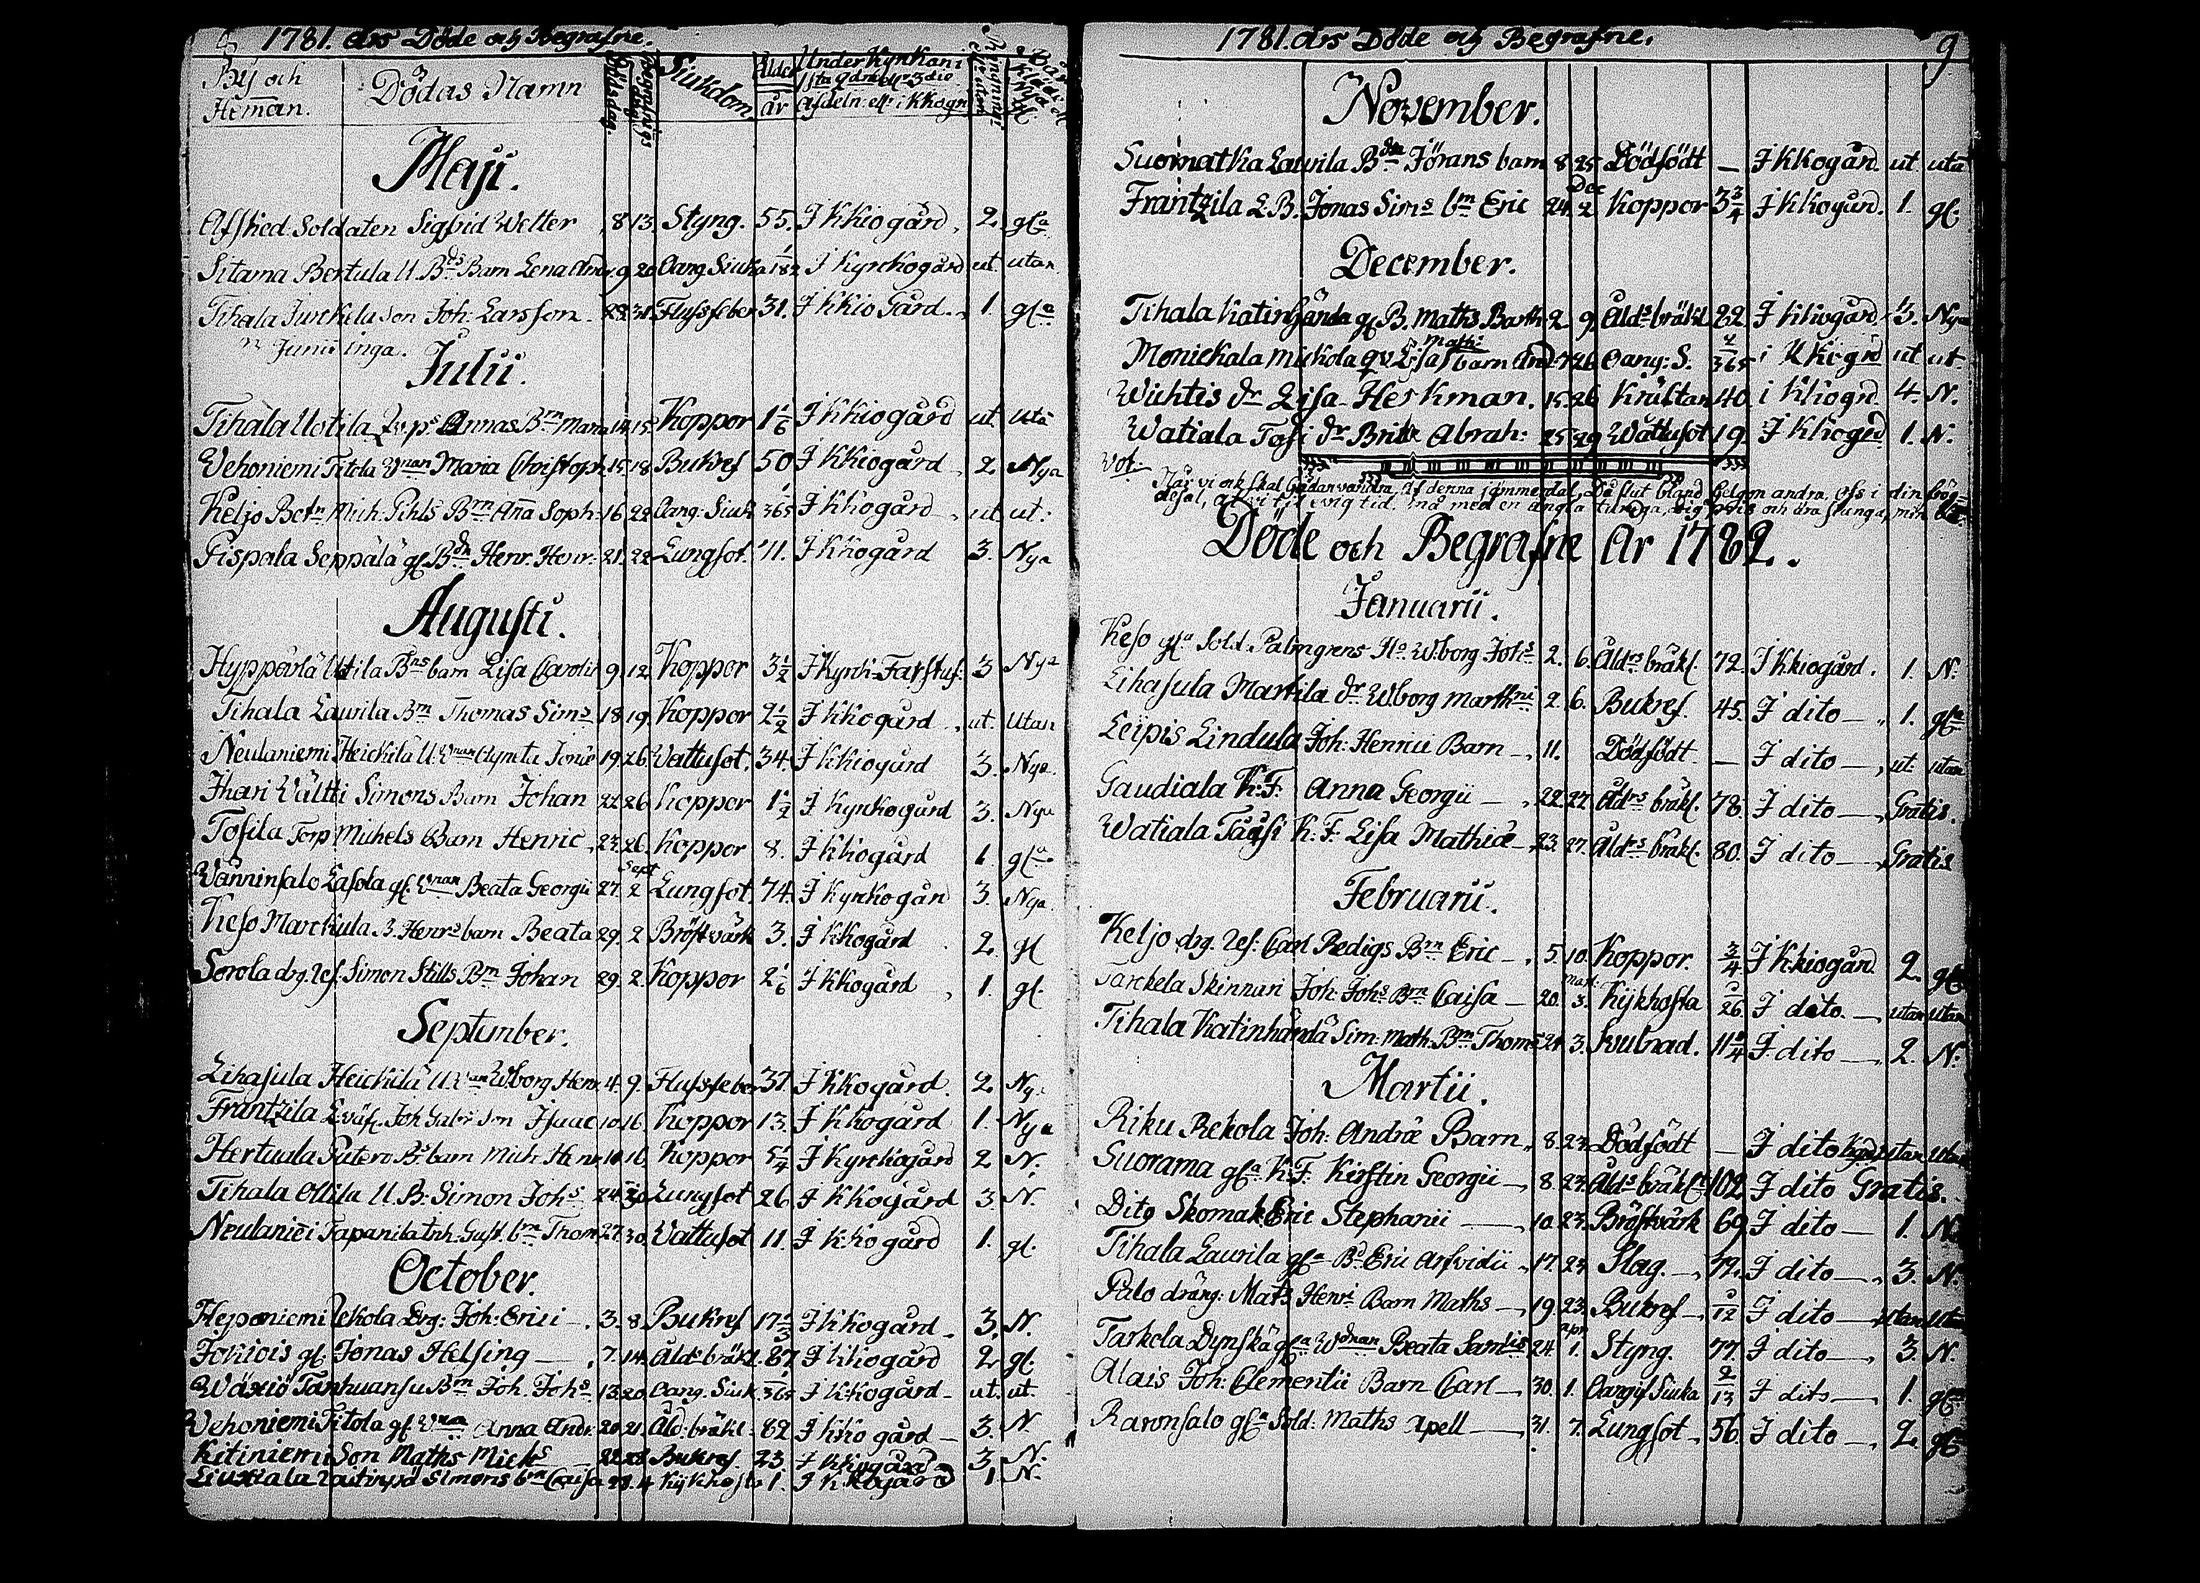 1781. års Döde och Begrafne.
By och Heman. Dödas Namn Dödsdag. Begrafnings Siukdom. Ålder år Under Kyrkan i
Maji.
Afsked Soldaten Sigfrid Welter 8 13 Styng. 55. J Kkiogård 2 gla
Sitama Bertula U. Bds Barn Lena 9 20 Oang. Siuka J Kyrckogård ut. utan
Tihala Junkila Son Joh: Larsson 31 Flussfeber 31. J Kkio Gård 1. gla
Junii inga.
Julii.
Tihala Uotila Annas Bm Maria 15 Koppor 1 1/6 J Kkiogård ut uta
Vehoniemi Titola Unan Maria Christoph 15 18 Bukref 50 J Kkiogård 2 Nya
Keljo Mich: Pihls Bm Anna Soph: 16 22 Oang: Siuk 1/365 J Kkogård ut ut:
Pispala Seppälä gl. Bdn Henr. Henr: 21. 22 Lungsot. 71. J Kkogård 3. Nya
Augusti.
Hyppärlä Utila Bns barn Lisa Carolin 9 12 Koppor 3 1/2 J Kyrck: 3 Nya
Tihala Laurila Bm Thomas Sims 18 19 Koppor 2 1/2 J Kkogård ut. Utan
Neulaniemi Heickilä U. Unan Agneta 19 26 Vattusot. 34. J Kkiogård 3. Nya.
Ihari Välti Simons Barn Johan 22 26 Koppor 1 1/2 J Kyrkogård 3. Nya
Tosila Torp Michels Barn Henric 23. 26. Koppor 8. J Kkogård 1 gla
Sept
Wänninsalo Lasola gl. Unan Beata Georgii 27. 2 Lungsot 74. J Kyrkogård 3. Nya
Keso Marckula B. Henrs barn Beata 29. 2 Bröstvärk 3. J Kkogård 2 gl
Sorola drg. Simon Stills Bm Johan 29. 2. Koppor 2 1/6 J Kkogård 1. gl.
September.
Lihasula Heickilä U. Wborg Henr. 4. 9. Flussfeber 37 J Kkogård 2 Ny.
Frantzila Joh Gabr: Son Isaac 10 16 Koppor 13. J Kkogård 1. Nya
Hertuala Putero Bs barn Mich: Henr 10 16 Koppor 5 1/4 J Kyrckogård 2 N.
Tihala Ollila U. B. Simon Johs. 24 30 Lungsot 26 J Kkogård 3. N.
Neulanie i Tapanila Inh: Gust. bm Thom 27. 30. Vattusot 11. J Kkogård 1. gl.
October.
Heponiemi Uekola Drg: Joh: Erici 3. 8 Bukref 17 1/3 J Kkogård 3. N.
Jokiois gl. Jonas Helsing 7. 14. Ålds bräkl. 87. J Kkiogård 2 gl.
Wäxiö Tanhuansu Bm Joh. Johs. 13. 20 Oang. Siuk 1/365 J Kkogård ut. ut.
Vehoniemi Titola gl. Unan Anna Andr. 20 21. Åld: bräkl: 82 J Kkogård 3. N.
Kitiniemi Son Maths Micks 22 28 Bukref 23 J Kkiogård 3 N.
Liuxiala Simons bm Caisa 28. 4 Kijkhosta 1. J Kkogård 1. N.
1781. års Döde och Begrafne. 9
November.
Suomatka Laurila Bdn Jörans barn 8 25 Dödfödt — J Kkogård. ut uta
Dec
Frantzila L. B. Jonas Sims bm Eric 24. 2 Koppor 3 3/4 J Kkogård. 1. gl.
December.
Tihala Katinhända gl. B. Maths Barth 2 9. Ålds bräkl 82 J Kkiogård 3. Nya
Monickala Mickola qv Lisa Math: barn And: 26 Oang: S. 365 i Kkogrd ut ut.
Wichtis dr Lisa Herkman. 15. 26 Kräftan 40 i Kkogrd. 4. N.
Watiala Tosi dr Britta Abrah: 25 29 Wattusot 19. J Kkogrd 1. N.
Vot: När vi ock skal hädan vandra, Af denna jämmerdal, Då slut bland helgon andra, Oss i din
Döde och Begrafne År 1782.
Januarii.
Keso gla Sold. Palmgrens Ho. Wborg Johs 2. 6. Åldrs bräkl. 72. J Kkiogård. 1. N.
Lihasula Martila dr Wborg Marthni 2. 6. Bukref. 45. J dito — 1. gla
Leipis Lindula Joh: Henrici Barn — 11. Dödfödt — J dito — ut. utan
Gaudiala K. F. Anna Georgii — 22. 27. Åldrs bräkl. 78. J dito — Gratis.
Watiala Tausi K. F. Lisa Mathiæ — 23. 27. Åldrs bräkl. 80. J dito — Gratis
Februarii.
Keljo drg. Carl Redigs Bm Eric — 5. 10. Koppor. 3/4 J Kkiogård. 2 gla
Mart.
Tarckela Skinnari Joh: Johs Bm Caisa — 20. 3. Kijkhosta 26 J dito. — utan utan
Tihala Katinhända Sim: Math: Bm Thoms 24. 3. 11 3/4 J dito — 2. N.
Martii.
Riku Rekola Joh: Andræ Barn 8. 23. Dödfödt — J dito utan utan
Suorama gla K. F. Kirstin Georgii — 8. 23. Ålds bräkl 102 J dito Gratis.
Dito Skomak Eric Stephanii — 10. 23. Bröstvärk 69 J dito — 1. N.
Tihala Laurila gla Bd Eric Arfvidii 17. 23. Slag. — 72. J dito — 3. N.
Palo dräng: Mats Henri Barn Maths — 19. 23. Bukref — 1/12 J dito — utan utan
apr
Tarkola Dynskä gla Wdnan Beata Samuels 24. 1. Styng. 77. J dito — 3. N.
Alais Joh: Clementii Barn Carl — 30. 1. Oangif Siuka 2/13 J dito — 1. gla
Raronsalo gla Sold: Maths Apell — 31. 7. Lungsot 56. J dito — 2. gla